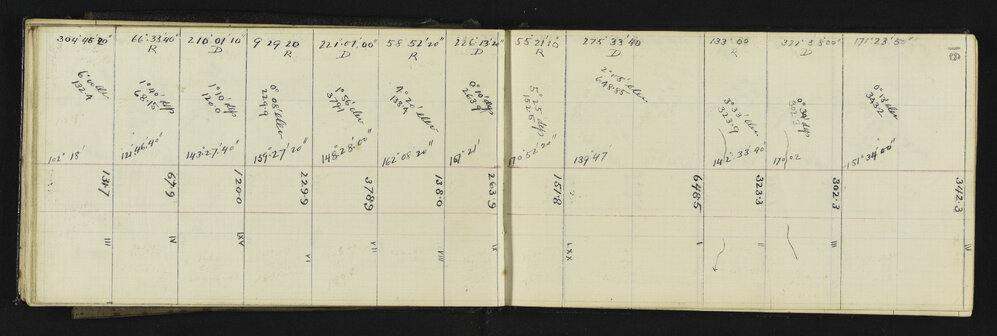 16
304°46'20"
66°33'40"
R
210°01'10"
D
9 29 20
R
221°01'00"
D
58°52'20"
R
226°13'20"
D
55°21'10"
R
275°33'40
D
133°00
R
171°23'50"
6°00' elev
132.4
1°40' dep
68.15
1°10' dep
120.0
0°08' elev
229.9
1°56' elev
379.1
4°20' elev
138.4
0°10' dep
263.9
5°25 dep
152.5
2°05' elev
648.85
3°33' elev
323.9
0°34' dep
302.3
0°13' elev
343.2
102°18'
121°46'40"
143°27'40"
159°27'20"
148°28'00"
162°08'20"
167°21'
170°52'20"
139°47'
142°33'40"
170°02
151°34'00"
131.7
67.9
120.0
229.9
378.9
138.0
263.9
151.8
648.5
323.3
302.3
342.3
III
IV
LXV
VI
VII
VIII
IX
LXX
I
II
III
IV